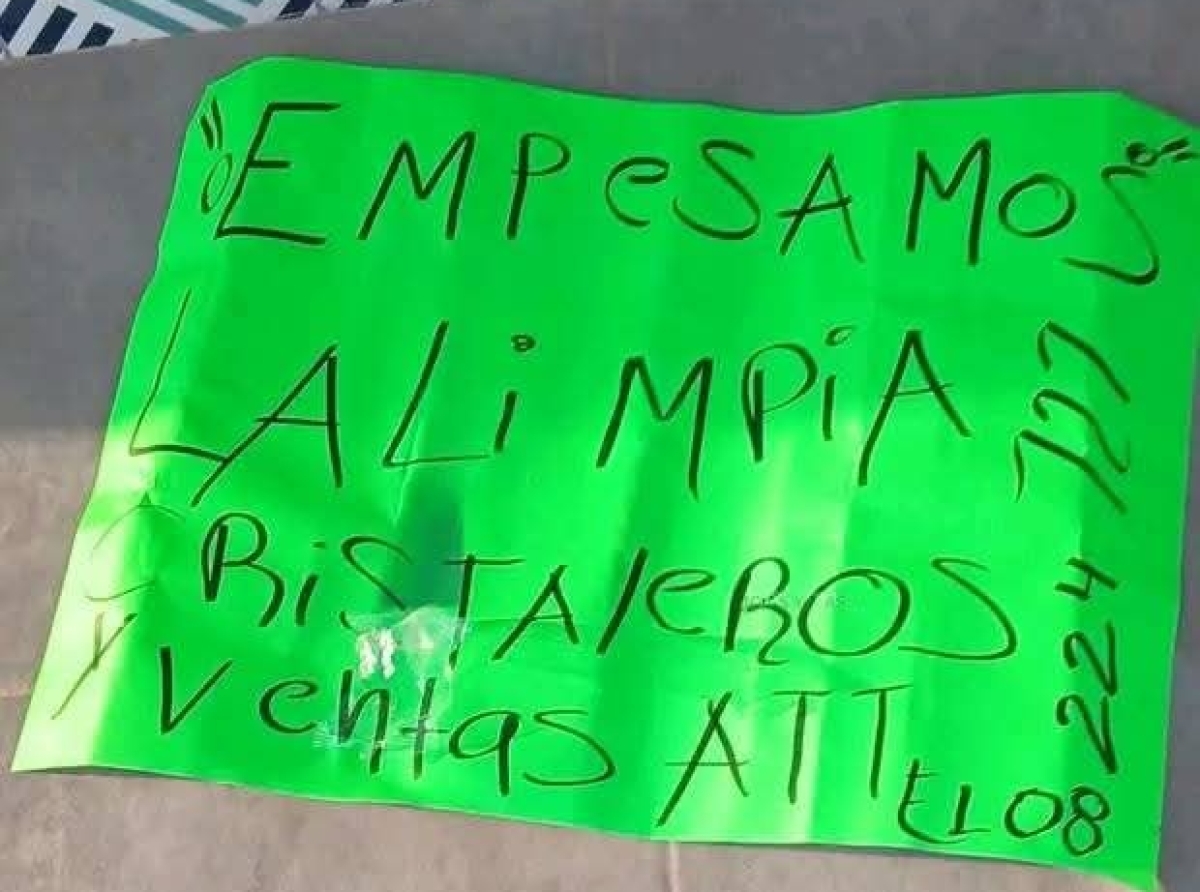 "EMPeSAMOS"
LALiMPiA
CRiSTAleROS
Y VentaS ATT
224 727